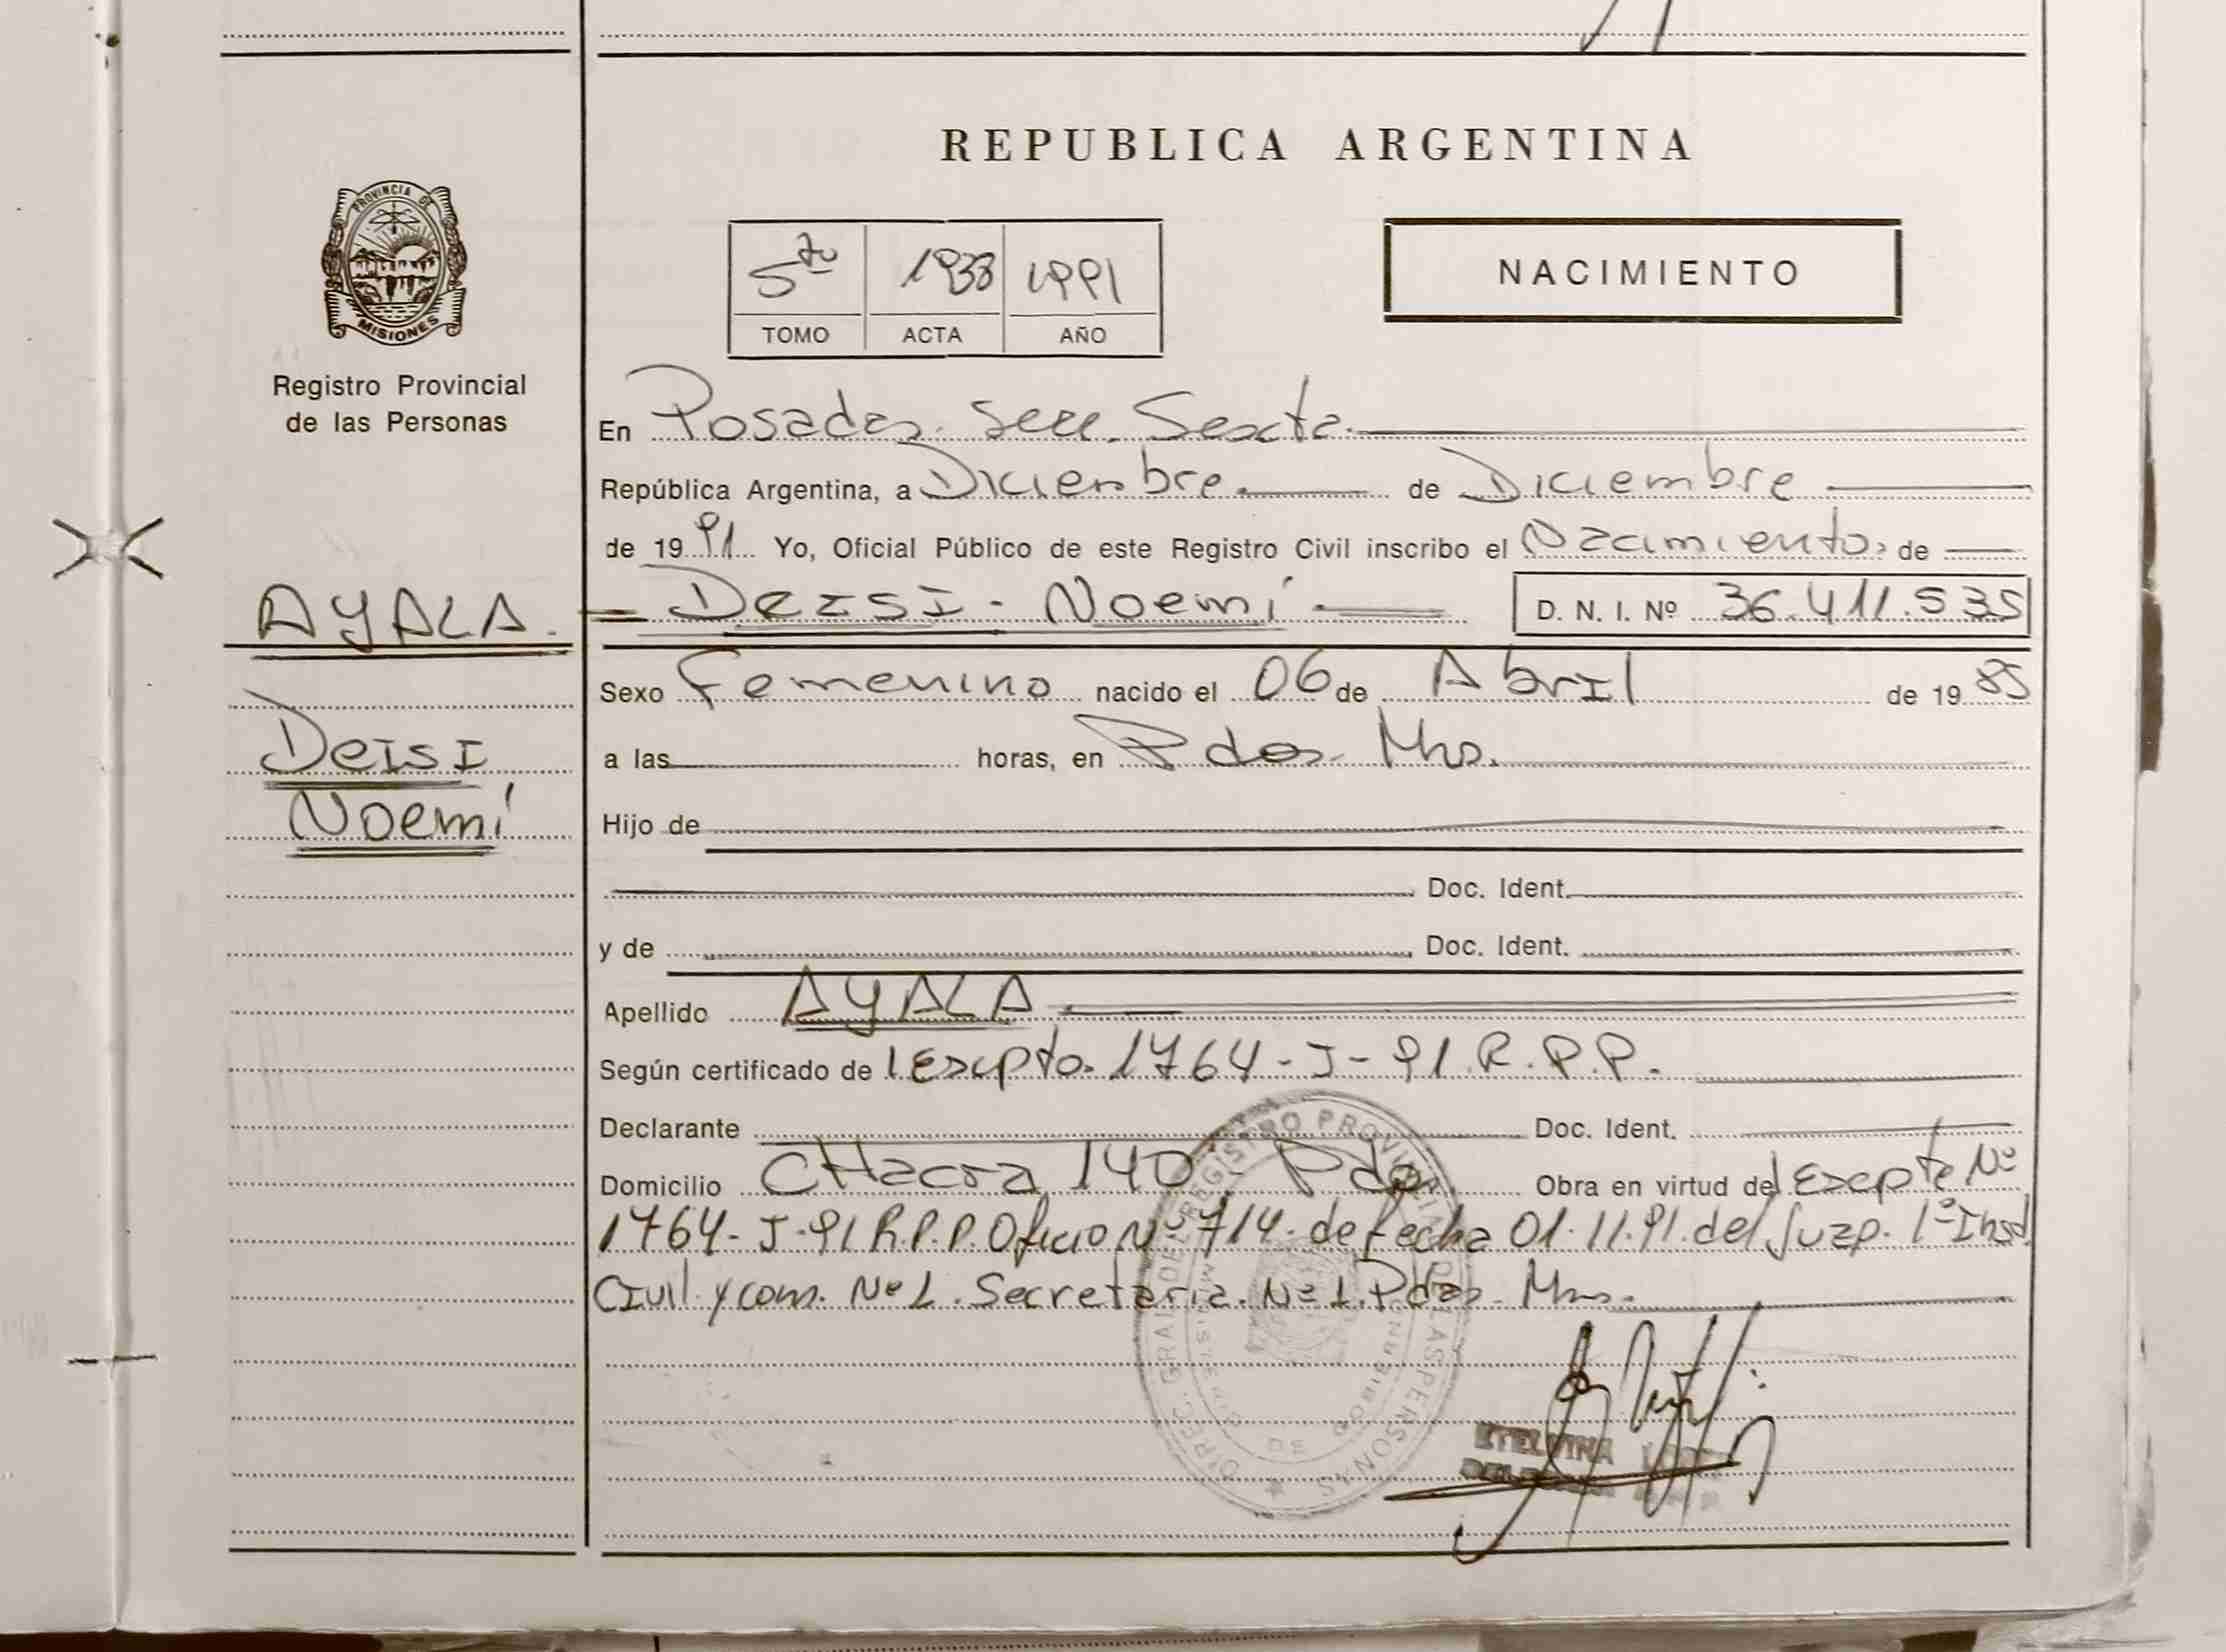 REPUBLICA ARGENTINA
PROVINCIA DE
MISIONES
Registro Provincial
de las Personas
5to 1933 1991
TOMO ACTA AÑO
NACIMIENTO
En Posadas. Secc. Sexta.
República Argentina, a Diciembre de Diciembre
de 19 91 Yo, Oficial Público de este Registro Civil inscribo el Nacimiento de
AYALA. Deisi - Noemí D. N. I. Nº 36.411.535
Sexo Femenino nacido el 06 de Abril de 19 85
Deisi
a las horas, en Pdas. Mns.
Noemí
Hijo de
Doc. Ident.
y de Doc. Ident.
Apellido AYALA
Según certificado de l Escpto. 1764-J-91.R.P.P.
Declarante Doc. Ident.
Domicilio CHacra 140 Pdas. Obra en virtud del Expte Nº
1764-J-91 R.P.P. Oficio Nº 714. de fecha 01.11.91. del Juzg. 1º Inst.
Civil y com. Nº 1. Secretaria. Nº 1. Pdas. Mns.
DIREC. GRAL DEL REGISTRO PROVINCIAL DE LAS PERSONAS
MINISTERIO DE GOBIERNO
ETELVINA